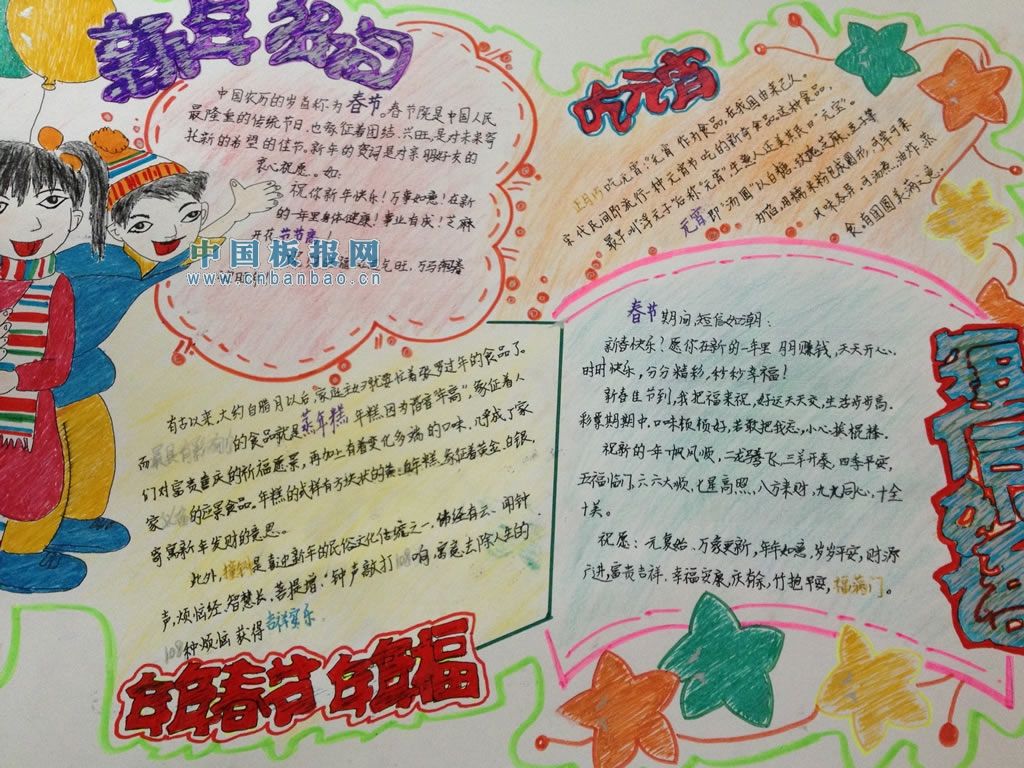 新年
中国农历的岁首称为春节。春节既是中国人民
最隆重的传统节日,也象征着团结、兴旺,是对未来寄
托新的希望的佳节。新年的贺词是对亲朋好友的
衷心祝愿。如:
祝你新年快乐!万事如意!在新
的一年里身体健康!事业有成!芝麻
开花节节高!
中国板报网
www.cnbanbao.cn
吃元宵
正月15吃元宵,"元宵"作为食品,在我国由来已久。
宋代民间即流行一种元宵节吃的新奇食品。这种食品,
最早叫"浮元子"后称"元宵",生意人还美其名曰"元宝"。
元宵即"汤圆"以白糖、玫瑰、芝麻、豆沙等
为馅,用糯米粉包成圆形,可荤可素
风味各异。可汤煮、油炸、蒸
食,有团圆美满之意。
自古以来,大约自腊月以后,家庭主妇就要忙着张罗过年的食品了。
而最具有的食品就是蒸年糕,年糕因为谐音"年高",象征着人
们对富贵喜庆的祈福愿景,再加上有着变化多端的口味,几乎成了家
家的应景食品。年糕的式样有方块状的黄、白年糕,象征着黄金、白银,
寄寓新年发财的意思。
此外,撞钟是喜迎新年的民俗文化传统之一,佛经有云、闻钟
声,烦恼轻、智慧长、菩提增,"钟声敲打108响,寓意去除人生的
108种烦恼获得吉祥安乐。
年年春节年年福
春节期间,短信如潮:
新春快乐!愿你在新的一年里月月赚钱,天天开心、
时时快乐,分分精彩,秒秒幸福!
新春佳节到,我把福来祝,好运天天交,生活步步高。
彩票期期中,口味顿顿好,若敢把我忘,小心挨棍棒。
祝新的一年一帆风顺,二龙腾飞,三羊开泰,四季平安,
五福临门,六六大顺,七星高照,八方来财,九九同心,十全
十美。
祝愿:一元复始、万象更新,年年如意,岁岁平安,财源
广进,富贵吉祥、幸福安康,庆有余,竹抱平安,福满门。